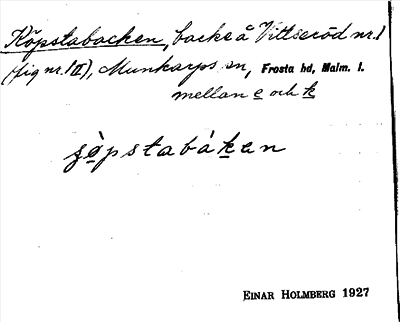 Köpstabacken, backe å Vittseröd nr. 1
(fig nr. 1 II), Munkarps sn, Frosta hd, Malm. l.
mellan e och k
söpstabáken
EINAR HOLMBERG 1927